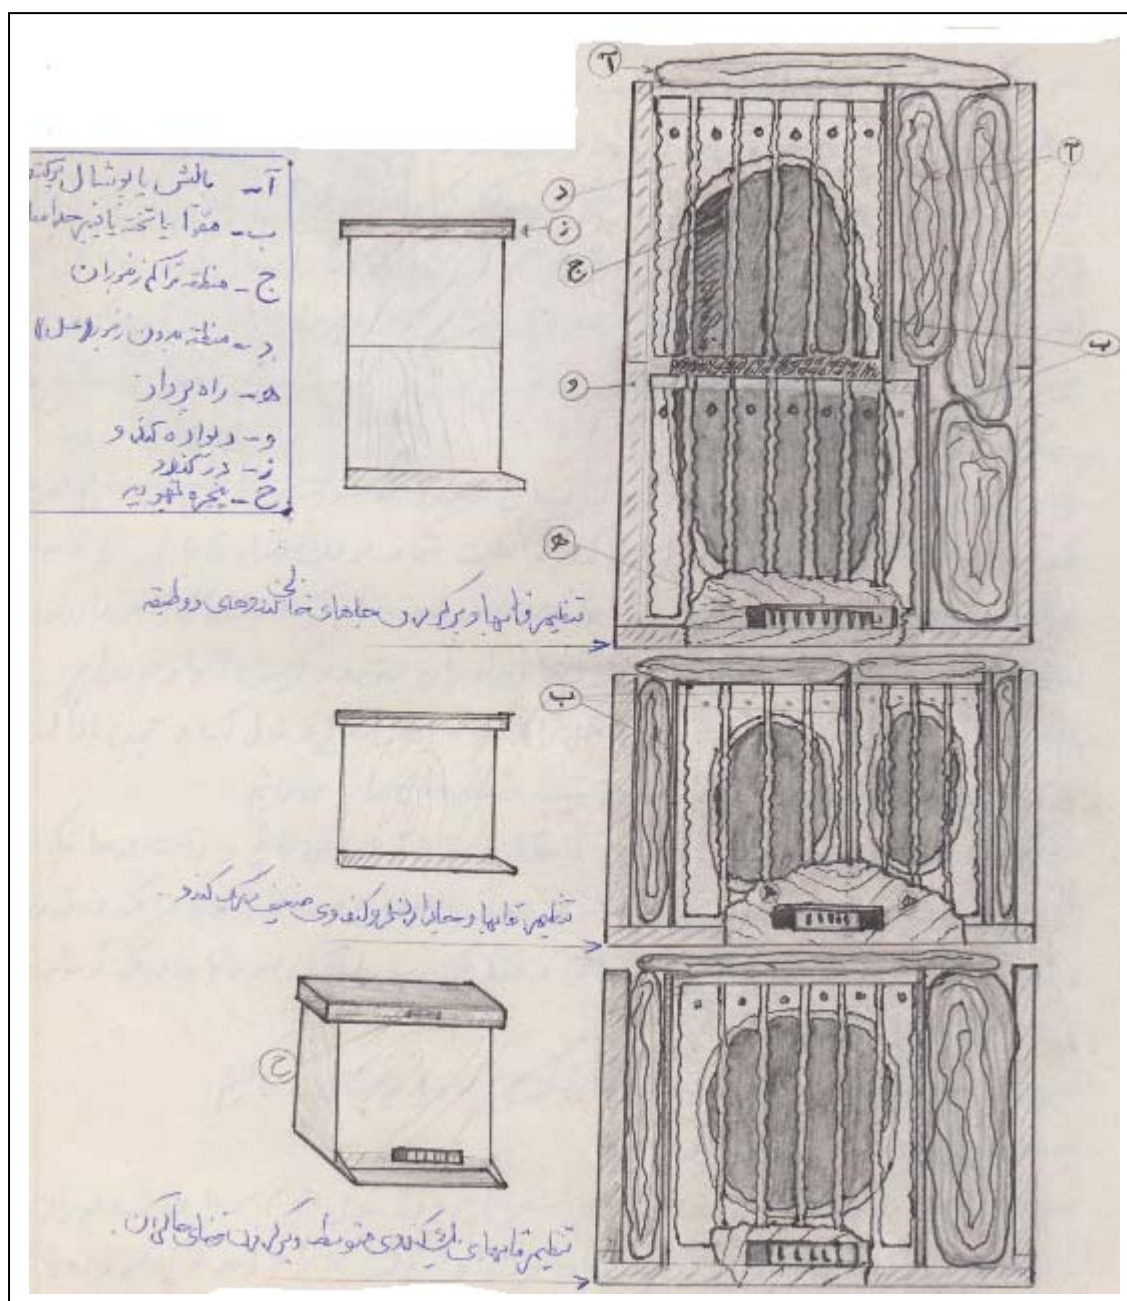 آ- بالش یا پوشال
ب- مقوا یا تخته یا فیبر
ج- منطقه تراکم زنبوران
د- منطقه بدون زنبور (عسل)
ه- راه پرواز
و- دیواره کندو
ز- در کندو
ح- پنجره تهویه
آ
د
ز
ج
آ
ب
و
ه
تنظیم قابها و پر کردن جاهای خالی کندوهای دو طبقه
ب
تنظیم قابها و کندوی ضعیف یک کندو
ح
تنظیم قابهای کندوی متوسط و پر کردن فضای خالی آن